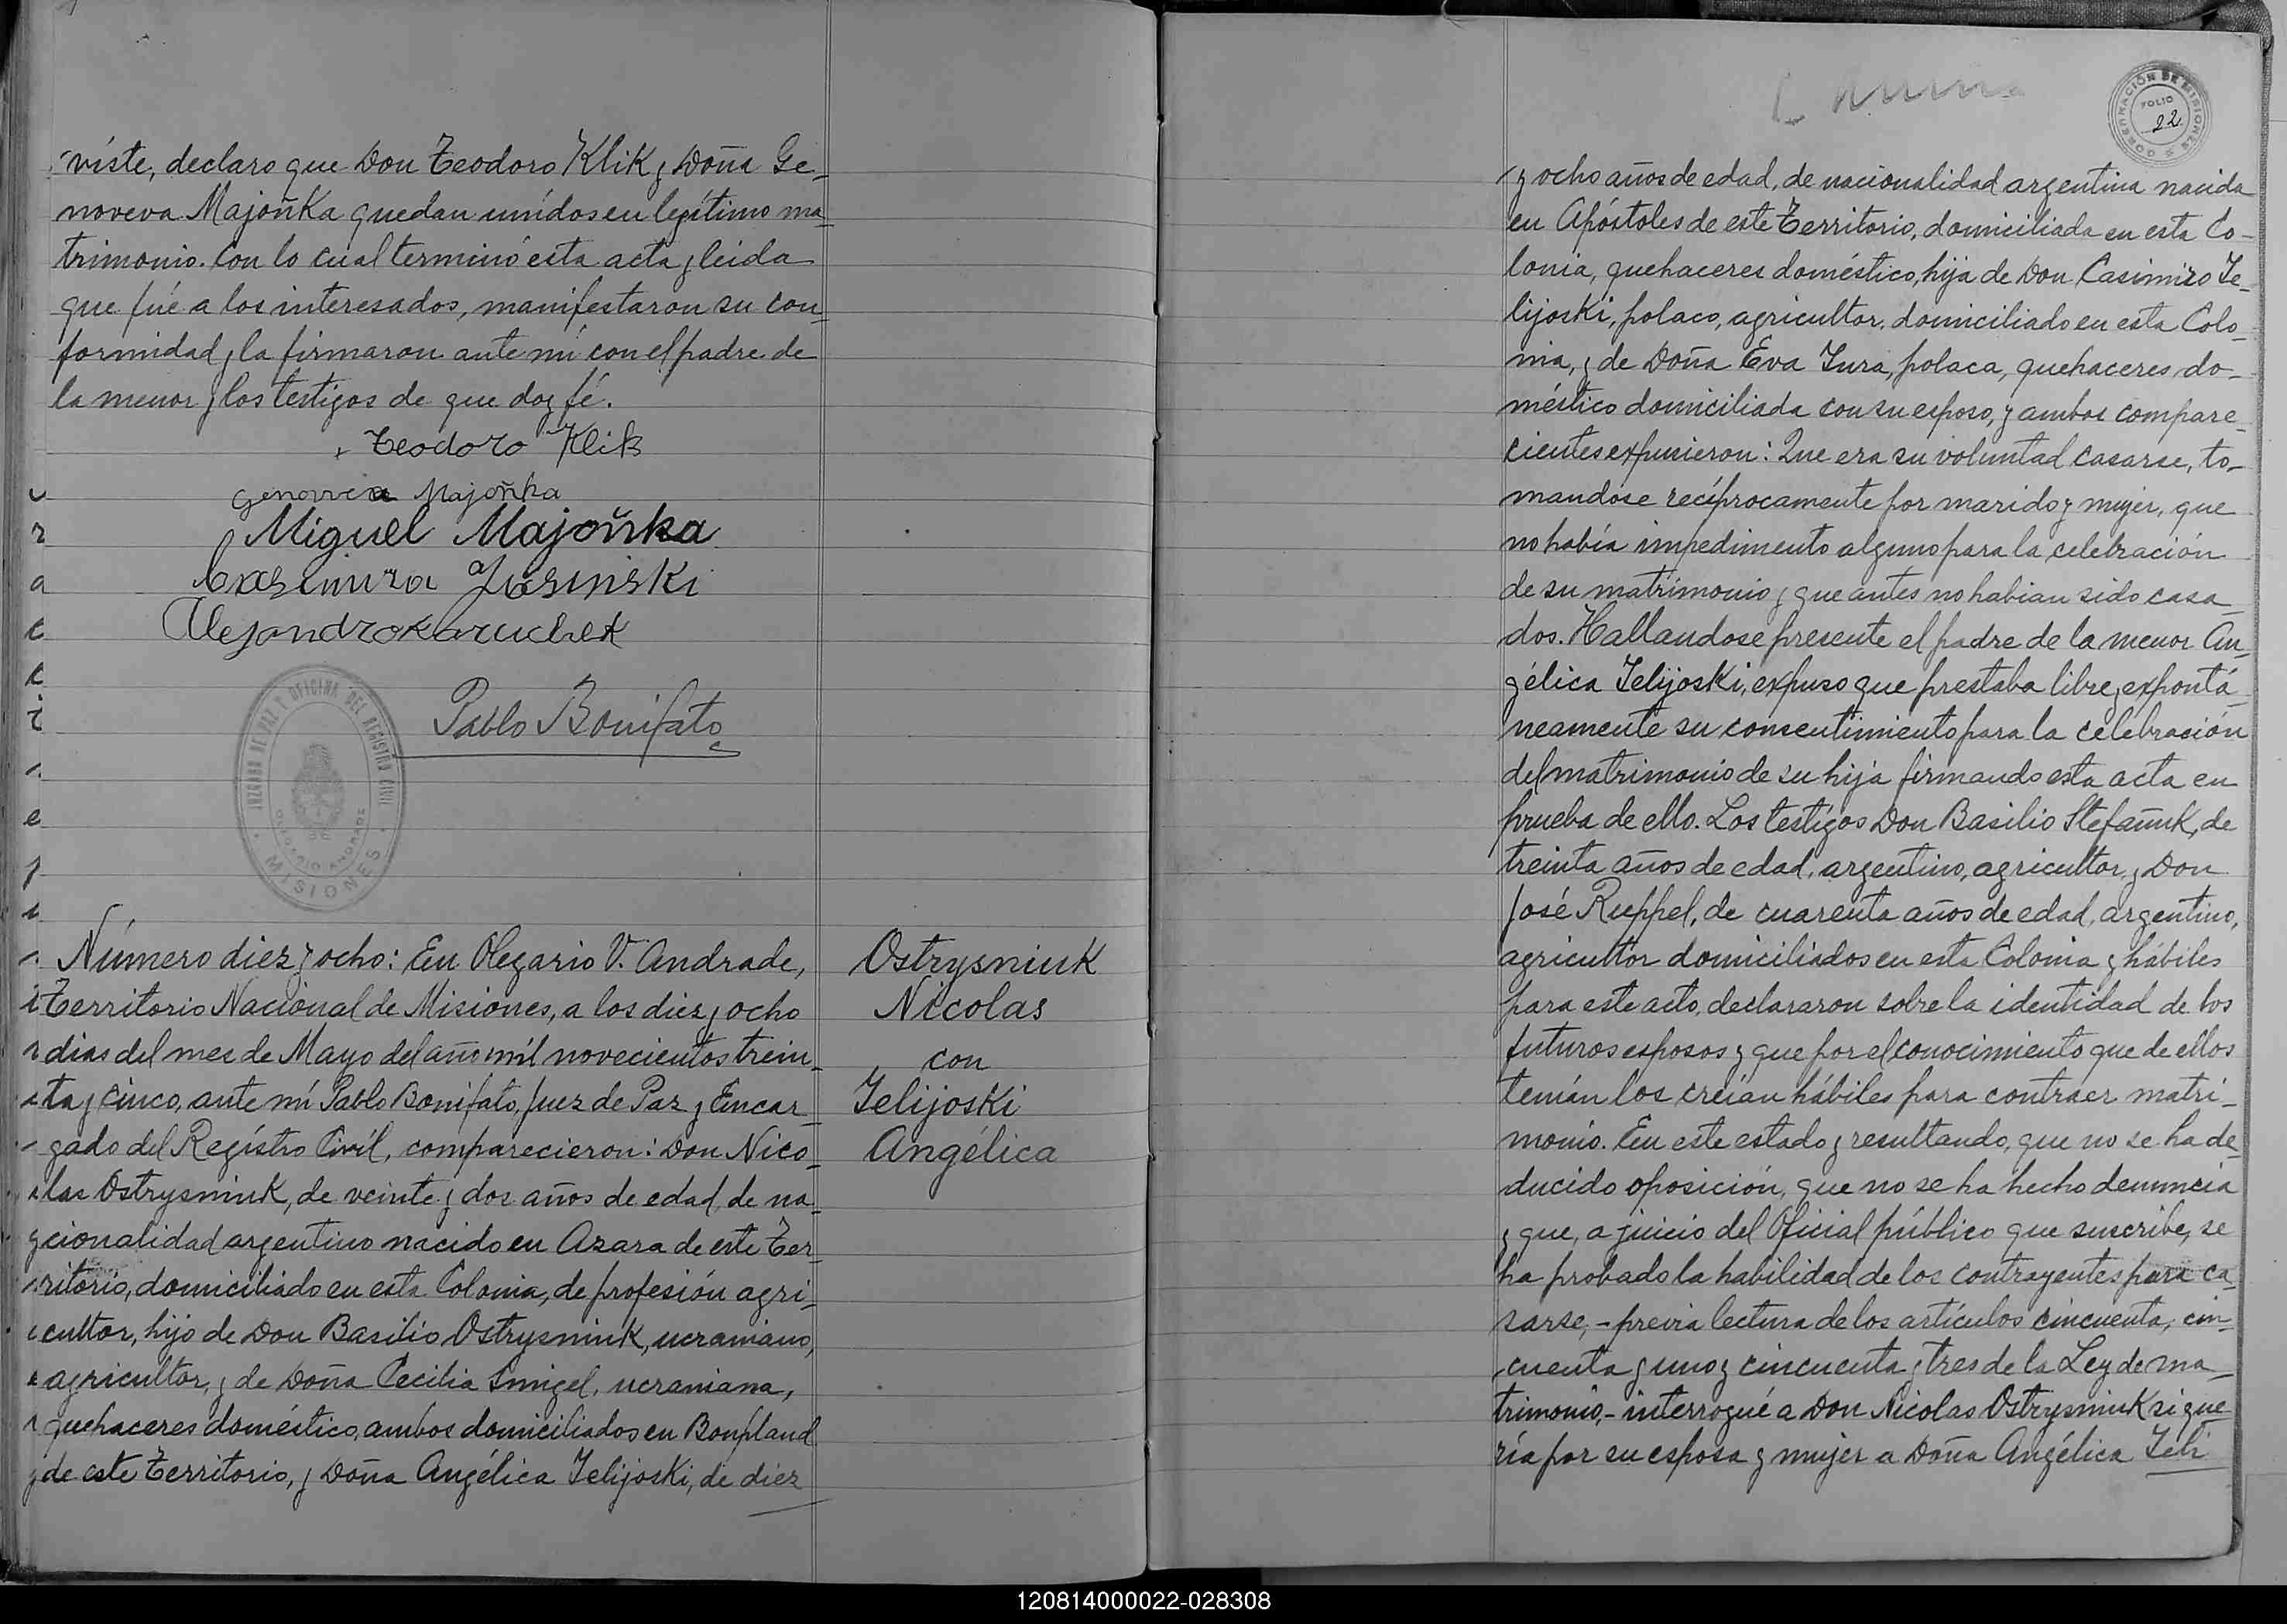 viste, declaro que Don Teodoro Klik y Doña Ge-
noveva Majoñka quedan unidos en legítimo ma-
trimonio. Con lo cual terminó esta acta y leida
que fué a los interesados, manifestaron su con-
formidad y la firmaron ante mí con el padre de
la menor y los testigos de que doy fé.
Teodoro Klik
Majoñka
Miguel Majoñka
Pablo Bonifato
JUZGADO DE PAZ Y OFICINA DEL REGISTRO CIVIL
OLEGARIO ANDRADE
MISIONES
Número diez y ocho: En Olegario V. Andrade,
Territorio Nacional de Misiones, a los diez y ocho
dias del mes de Mayo del año mil novecientos trein-
ta y cinco, ante mí Pablo Bonifato, Juez de Paz y Encar-
gado del Registro Civil, comparecieron: Don Nico-
las Ostrysniuk, de veinte y dos años de edad, de na-
cionalidad argentino nacido en Azara de este Ter-
ritorio, domiciliado en esta Colonia, de profesión agri-
cultor, hijo de Don Basilio Ostrysniuk, ucraniano,
agricultor, y de Doña Cecilia Smigel, ucraniana,
quehaceres doméstico, ambos domiciliados en Bonpland
de este Territorio, y Doña Angélica Jelijoski, de diez
Ostrysniuk
Nicolas
con
Jelijoski
Angélica
GOBERNACIÓN DE MISIONES
FOLIO
22
y ocho años de edad, de nacionalidad argentina nacida
en Apóstoles de este Territorio, domiciliada en esta Co-
lonia, quehaceres doméstico, hija de Don Casimiro Je-
lijoski, polaco, agricultor, domiciliado en esta Colo-
nia, y de Doña Eva Jura, polaca, quehaceres do-
méstico domiciliada con su esposo, y ambos compare-
cientes expusieron: Que era su voluntad casarse, to-
mandose recíprocamente por marido y mujer, que
no había impedimento alguno para la celebración
de su matrimonio y que antes no habian sido casa-
dos. Hallandose presente el padre de la menor An-
gélica Jelijoski, expuso que prestaba libre y expontá-
neamente su consentimiento para la celebración
del matrimonio de su hija firmando esta acta en
prueba de ello. Los testigos Don Basilio Stefañuk, de
treinta años de edad, argentino, agricultor, y Don
José Ruppel, de cuarenta años de edad, argentino,
agricultor domiciliados en esta Colonia y hábiles
para este acto, declararon sobre la identidad de los
futuros esposos y que por el conocimiento que de ellos
tenían los creían hábiles para contraer matri-
monio. En este estado y resultando, que no se ha de-
ducido oposición, que no se ha hecho denuncia
y que, a juicio del Oficial público que suscribe, se
ha probado la habilidad de los contrayentes para ca-
sarse, - previa lectura de los artículos cincuenta, cin-
cuenta y uno y cincuenta y tres de la Ley de ma-
trimonio, - interrogué a Don Nicolas Ostrysniuk si que-
ría por su esposa y mujer a Doña Angélica Jeli
120814000022-028308